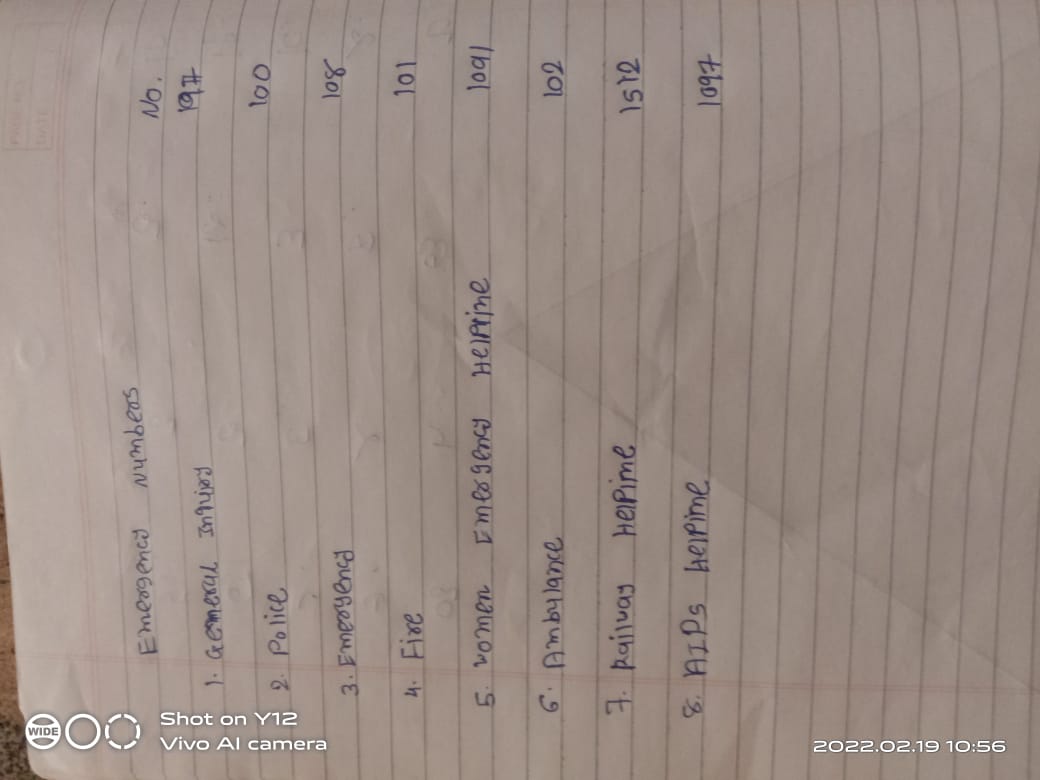 Emergency Numbers No.
1. General Inquiry 197
2. Police 100
3. Emergency 108
4. Fire 101
5. women Emergency Helpline 1091
6. Ambulance 102
7. Railway Helpine 1512
8. AIDs Helpine 1097
WIDE
Shot on Y12
Vivo AI camera
2022.02.19 10:56